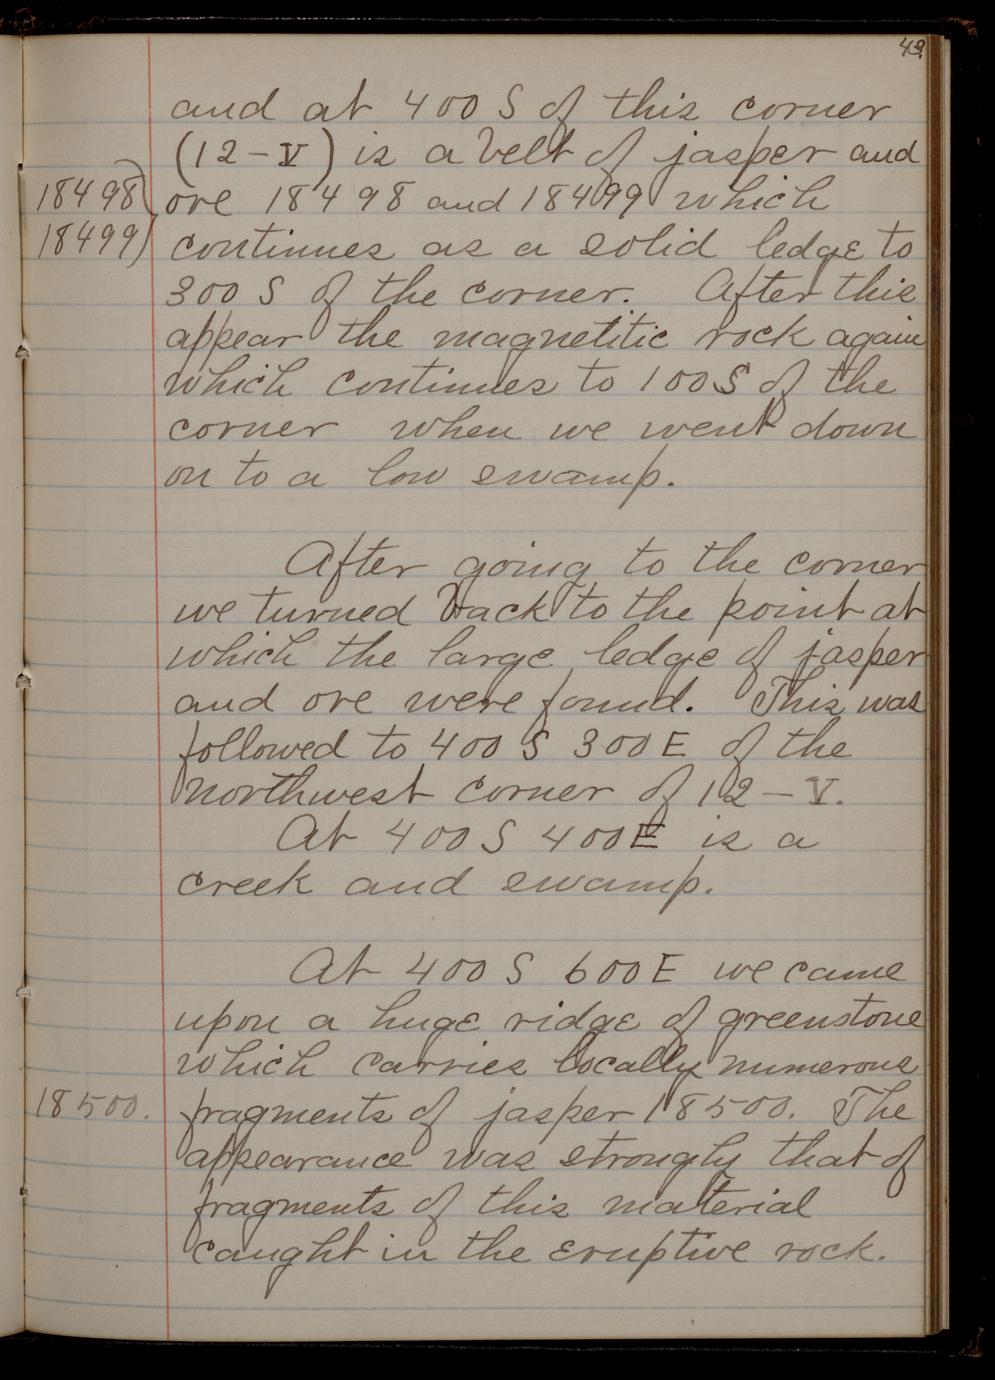 43.
and at 400 S of this corner
(12-V) is a belt of jasper and
18498) ore 18498 and 18499 which
18499) continues as a solid ledge to
300 S of the corner. After this
appear the magnetitic rock again
which continues to 100 S of the
corner when we went down
on to a low swamp.
After going to the corner
we turned back to the point at
which the large ledge of jasper
and ore were found. This was
followed to 400 S 300 E of the
northwest corner of 12-V.
At 400 S 400 E is a
creek and swamp.
At 400 S 600 E we came
upon a huge ridge of greenstone
which carries locally numerous
18500. fragments of jasper 18500. The
appearance was strongly that of
fragments of this material
caught in the eruptive rock.